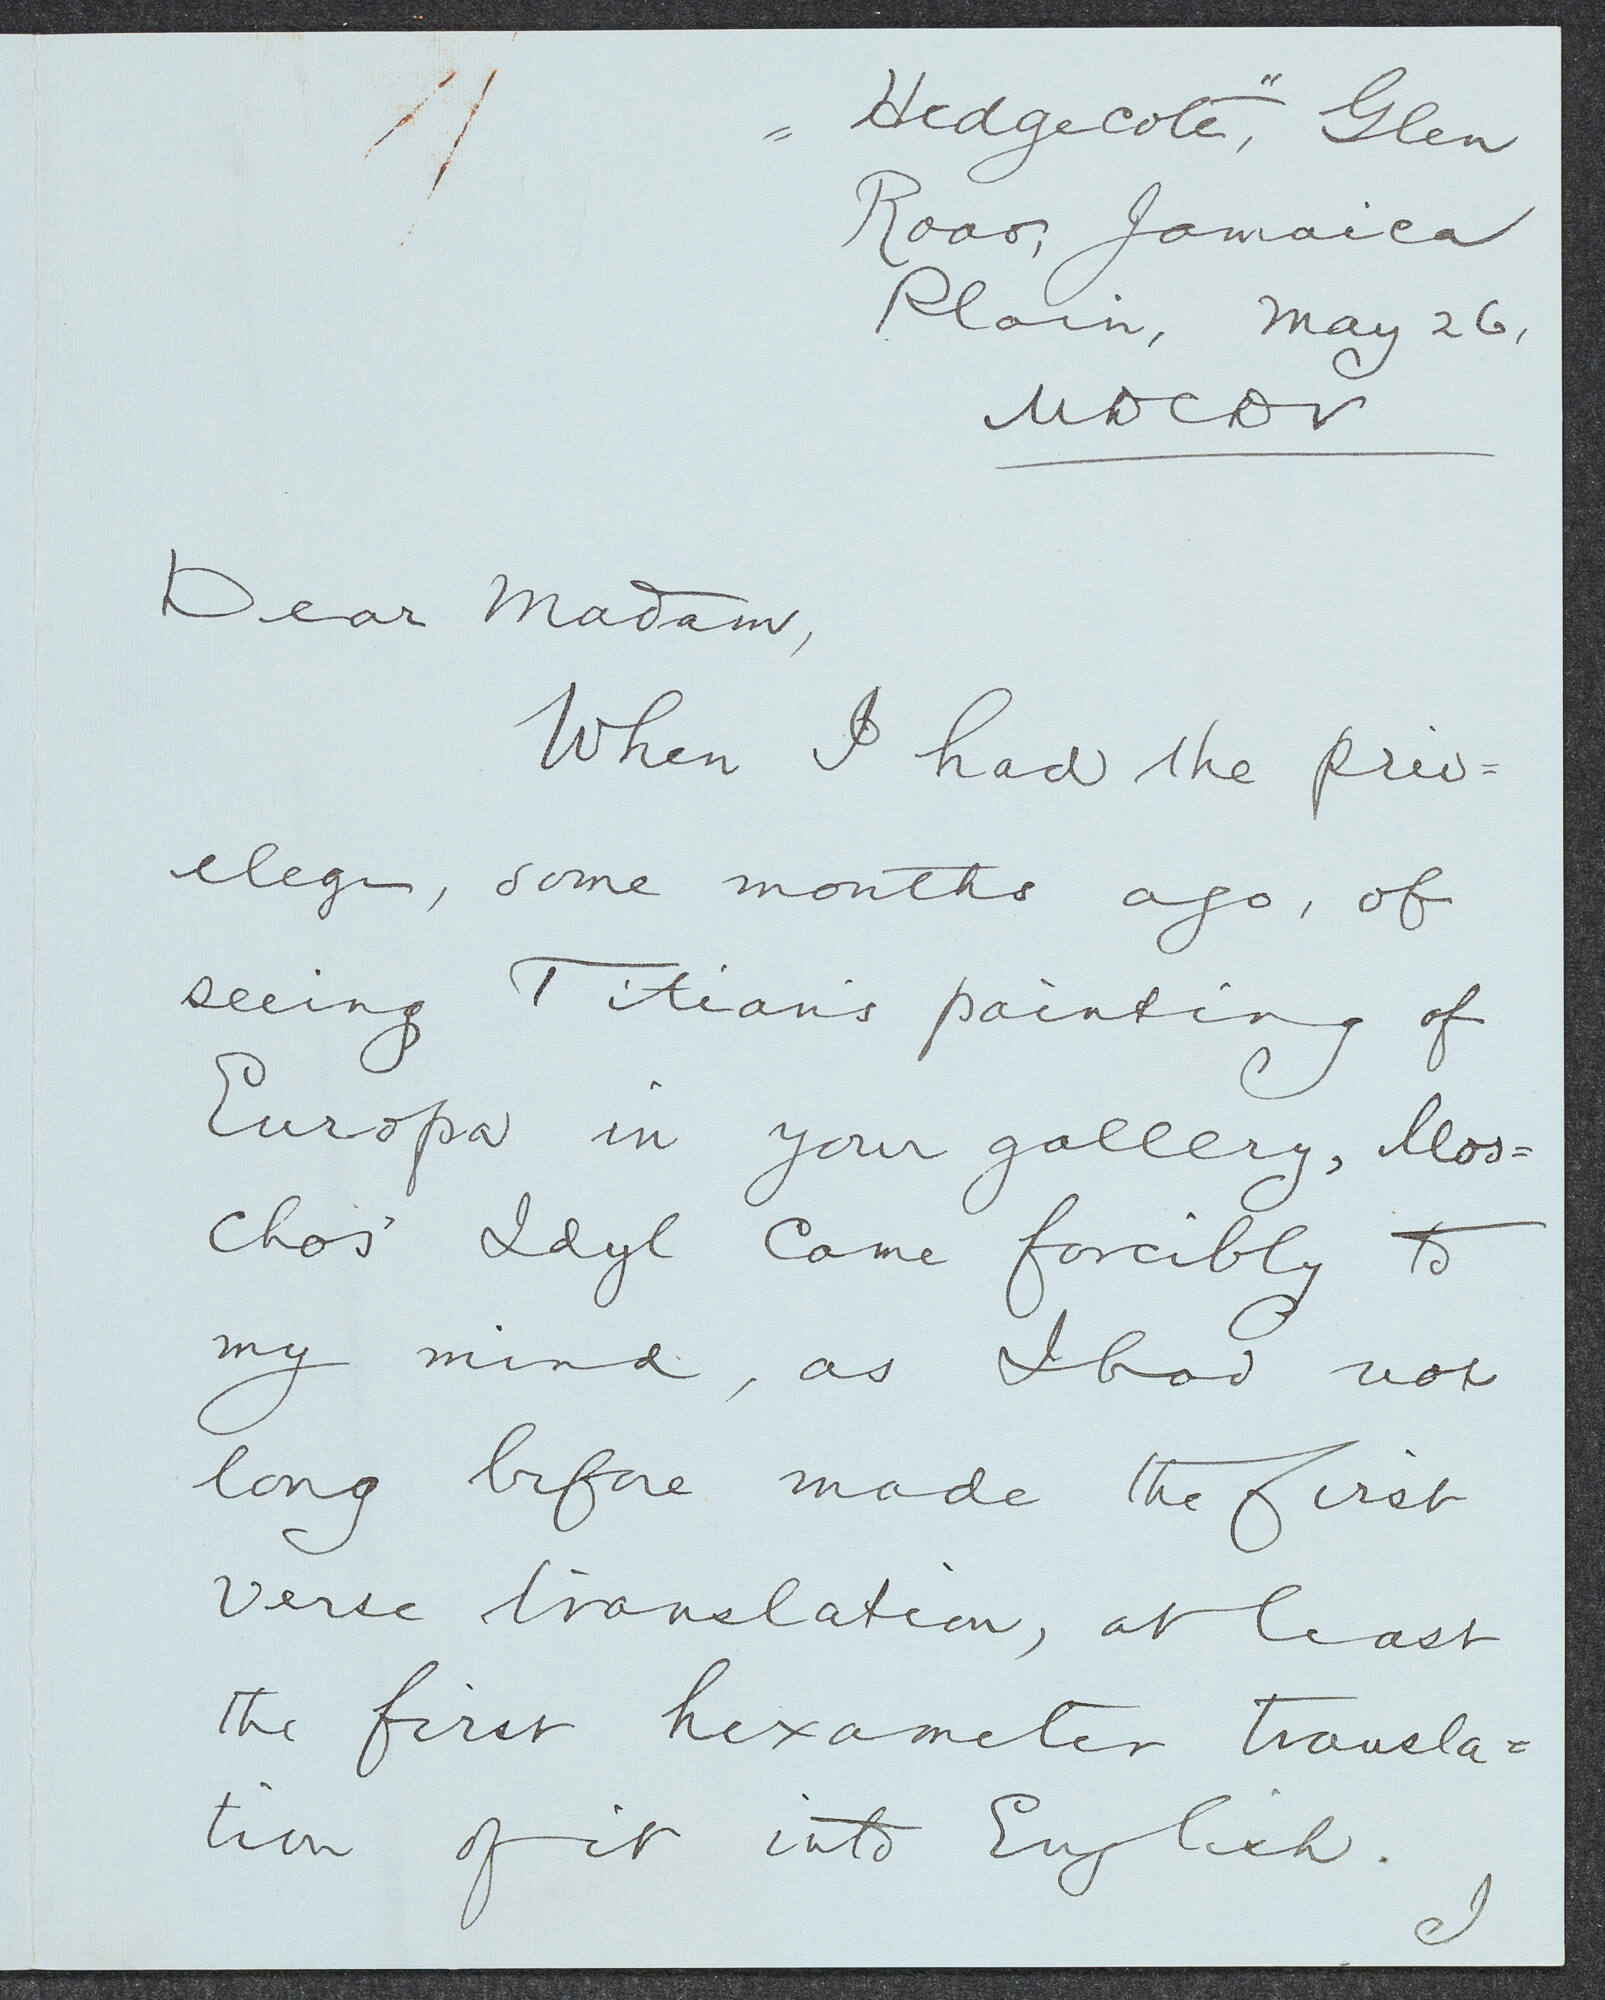 "Hedgecote", Glen
Road, Jamaica
Plain, May 26,
MDCDV
Dear Madam,
When I had the priv=
elege, some months ago, of
seeing Titian's painting of
Europa in your gallery, Mos=
chos' Idyl came forcibly to
my mind, as I had not
long before made the first
verse translation, at least
the first hexameter transla=
tion of it into English.
I